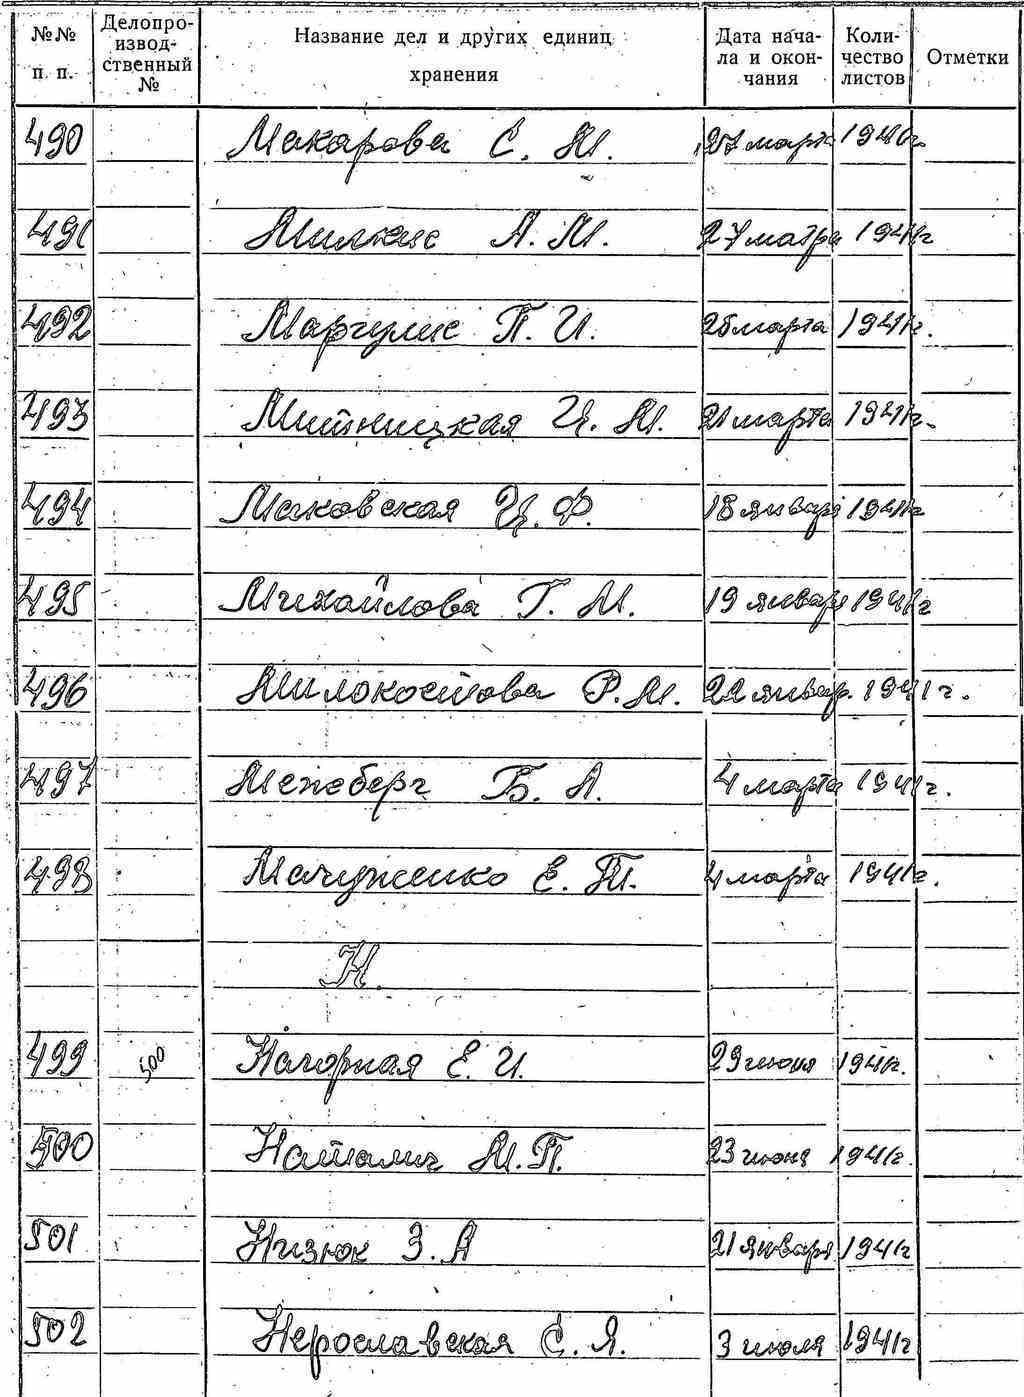 №№ п. п. Делопро-изводственный № Название дел и других единиц хранения Дата начала и окончания Количество листов Отметки
490 Макарова С. М. 27 марта 1940г.
491 Милкис А. М. 27 матра 1941г
492 Маргулис П. И. 25 марта 1941г.
493 Митницкая Ц. М. 21 марта 1941г.
494 Маковская Ц. Ф. 18 января 1941г
495 Михайлова Г. М. 19 января 1941г
496 Милокостова Р. М. 22 январ. 1941г.
497 Межеберг Б. А. 4 марта 1941г.
498 Мачуженко Е. П. 4 марта 1941г.
Н.
499 500 Нагорная Е. И. 29 июня 1941г.
500 Наталич М. П. 23 июня 1941г.
501 Низюк З. А 21 января 1941г
502 Нерославская С. Я. 3 июля 1941г